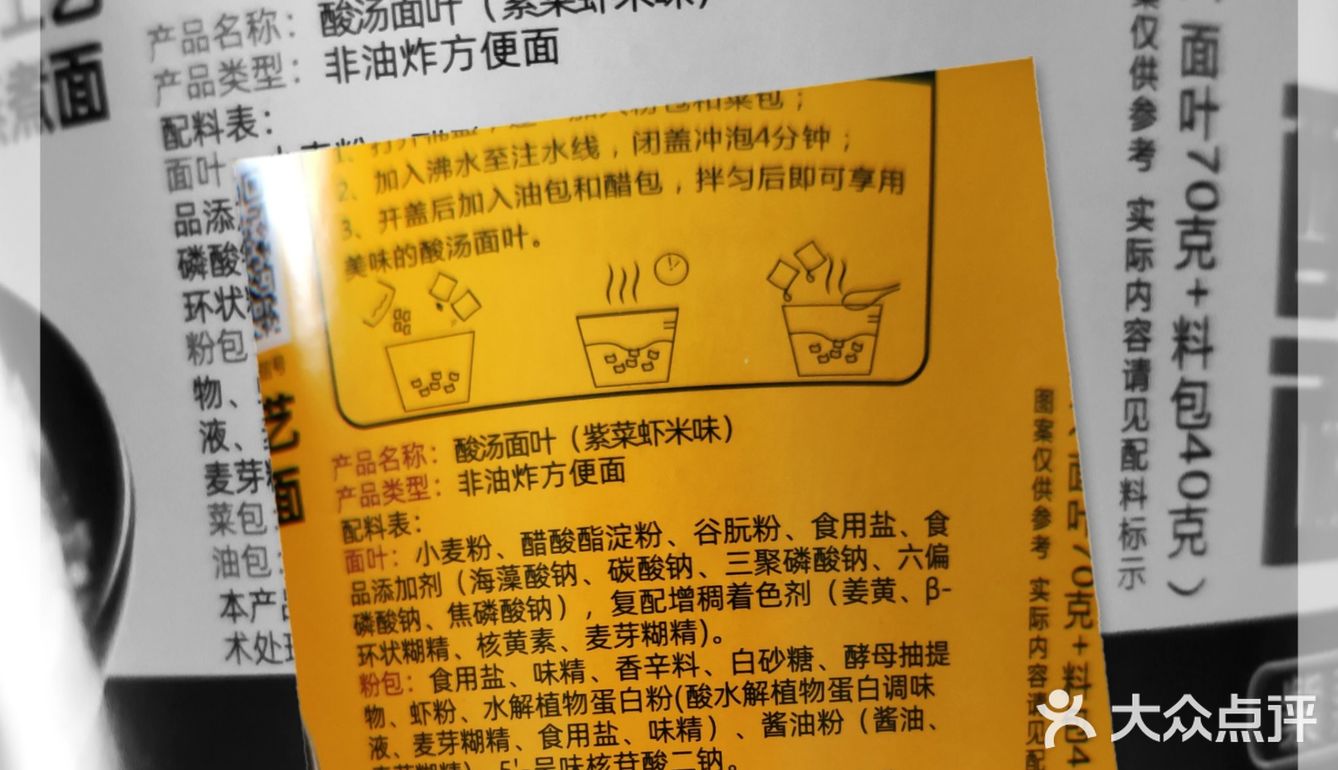 产品名称：酸汤面叶（紫菜虾米味）
产品类型：非油炸方便面
配料表：
面叶
品添
磷酸
环状糊
粉包
物、
液、
麦芽糊
菜包
油包：
本产品
术处理
煮面
面叶70克+料包40克）
案仅供参考 实际内容请见配料标示
加入粉包和菜包；
2、加入沸水至注水线，闭盖冲泡4分钟；
3、开盖后加入油包和醋包，拌匀后即可享用
美味的酸汤面叶。
艺
面
产品名称：酸汤面叶（紫菜虾米味）
产品类型：非油炸方便面
配料表：
面叶：小麦粉、醋酸酯淀粉、谷朊粉、食用盐、食
品添加剂（海藻酸钠、碳酸钠、三聚磷酸钠、六偏
磷酸钠、焦磷酸钠），复配增稠着色剂（姜黄、β-
环状糊精、核黄素、麦芽糊精)。
粉包：食用盐、味精、香辛料、白砂糖、酵母抽提
物、虾粉、水解植物蛋白粉(酸水解植物蛋白调味
液、麦芽糊精、食用盐、味精）、酱油粉（酱油、
麦芽糊精）、5'-呈味核苷酸二钠。
图案仅供参考 实际内容请见配
面叶70克+料包4
大众点评